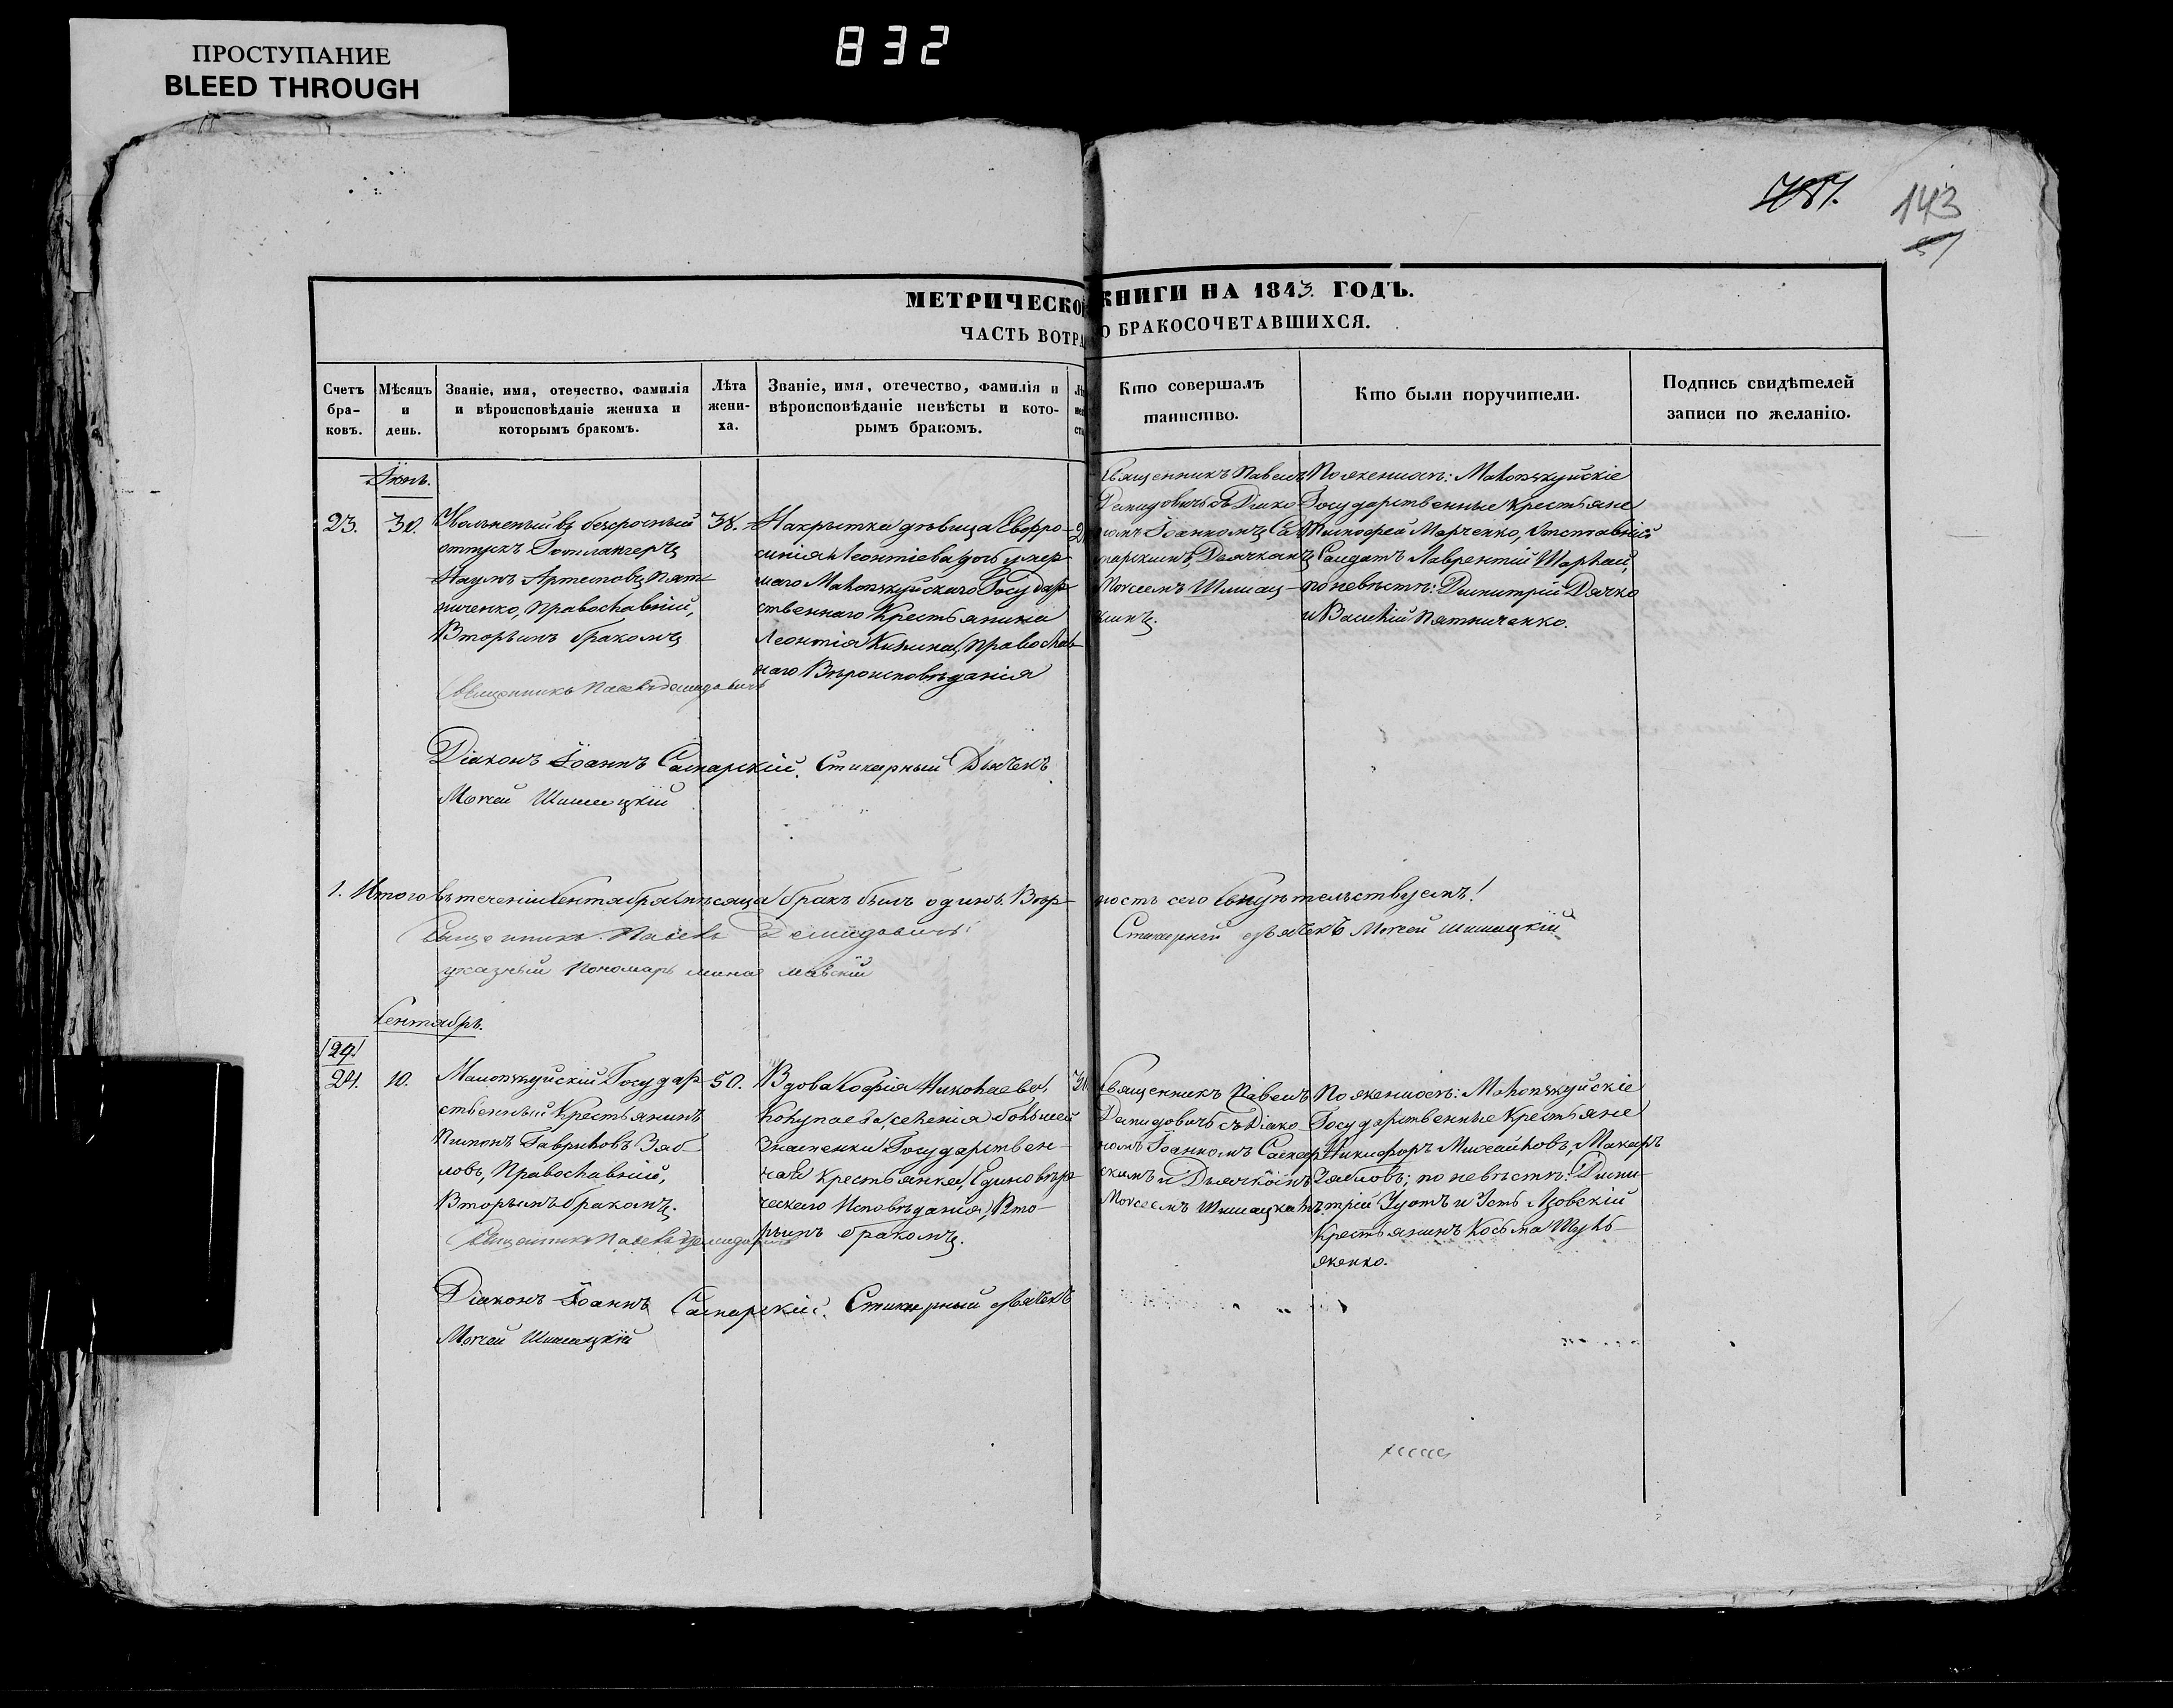 ПРОСТУПАНИЕ
BLEED THROUGH
832
787.
143
МЕТРИЧЕСКОЙ КНИГИ НА 1843. ГОДЪ.
ЧАСТЬ ВОТРАЯ О БРАКОСОЧЕТАВШИХСЯ.
Счетъ бра-ковъ.
Мѣсяцъ и день.
Званіе, имя, отечество, фамилія и вѣроисповѣданіе жениха и которымъ бракомъ.
Лѣта жени-ха.
Званіе, имя, отечество, фамилія и вѣроисповѣданіе невѣсты и кото-рымъ бракомъ.
Кто совершалъ таинство.
Кто были поручители.
Подпись свидѣтелей записи по желанію.
Іюнь.
23.
30.
Уволненый въ безсрочный
отпускъ
Наумъ Артемовъ Пят-
ниченко, Православный,
Вторымъ бракомъ
38.
Накрытка дѣвица Евфро-
синія Леонтіева дочь умер-
шаго Малоянкуйскаго Государ-
ственнаго Крестьянина
Леонтія Православ-
наго Вѣроисповѣданія
Священникъ Павелъ
Демидовичъ съ Діако-
номъ Іоанномъ Са-
марскимъ Дьячкомъ
Моѵсеемъ Шишац-
кимъ.
По женихѣ: Малоянкуйскіе
Государственные Крестьяне
Тимофей Марченко, Отставный
Салдатъ Лаврентій
по невѣстѣ: Димитрій Дячко
и Василій Пятниченко.
Священникъ Павелъ Демидовичъ
Діаконъ Іоаннъ Самарскій. Стихарный Дьячекъ
Моѵсей Шишацкій
1. Итого въ теченіи Сентября мѣсяца бракъ былъ одинъ. Вѣр-ность сего свидѣтельствуемъ!
Священникъ Павелъ Демидовичъ
Стихарный дьячекъ Моѵсей Шишацкій
указный Пономарь
Сентябрь.
/24/
24.
10.
Малоянкуйскій Государ-
ственный Крестьянинъ
Пименъ Гавриловъ Зяб-
ловъ, Православный,
Вторымъ бракомъ.
50.
Вдова Софія Николаева
селенія большой
Знаменки Государствен-
ная Крестьянка, Единовѣр-
ческаго Исповѣданія, Вто-
рымъ бракомъ.
Священникъ Павелъ
Демидовичъ съ Діако-
номъ Іоанномъ Самар-
скимъ и Дьячкомъ
Моѵсеемъ Шишацкимъ
По женихѣ: Малоянкуйскіе
Государственные Крестьяне
Никифоръ Михайловъ, Макаръ
Зябловъ; по невѣстѣ: Дими-
трій и Усть Азовскій
Крестьянинъ Косьма Шуль-
женко.
Священникъ Павелъ Демидовичъ
Діаконъ Іоаннъ Самарскій. Стихарный дьячекъ
Моѵсей Шишацкій